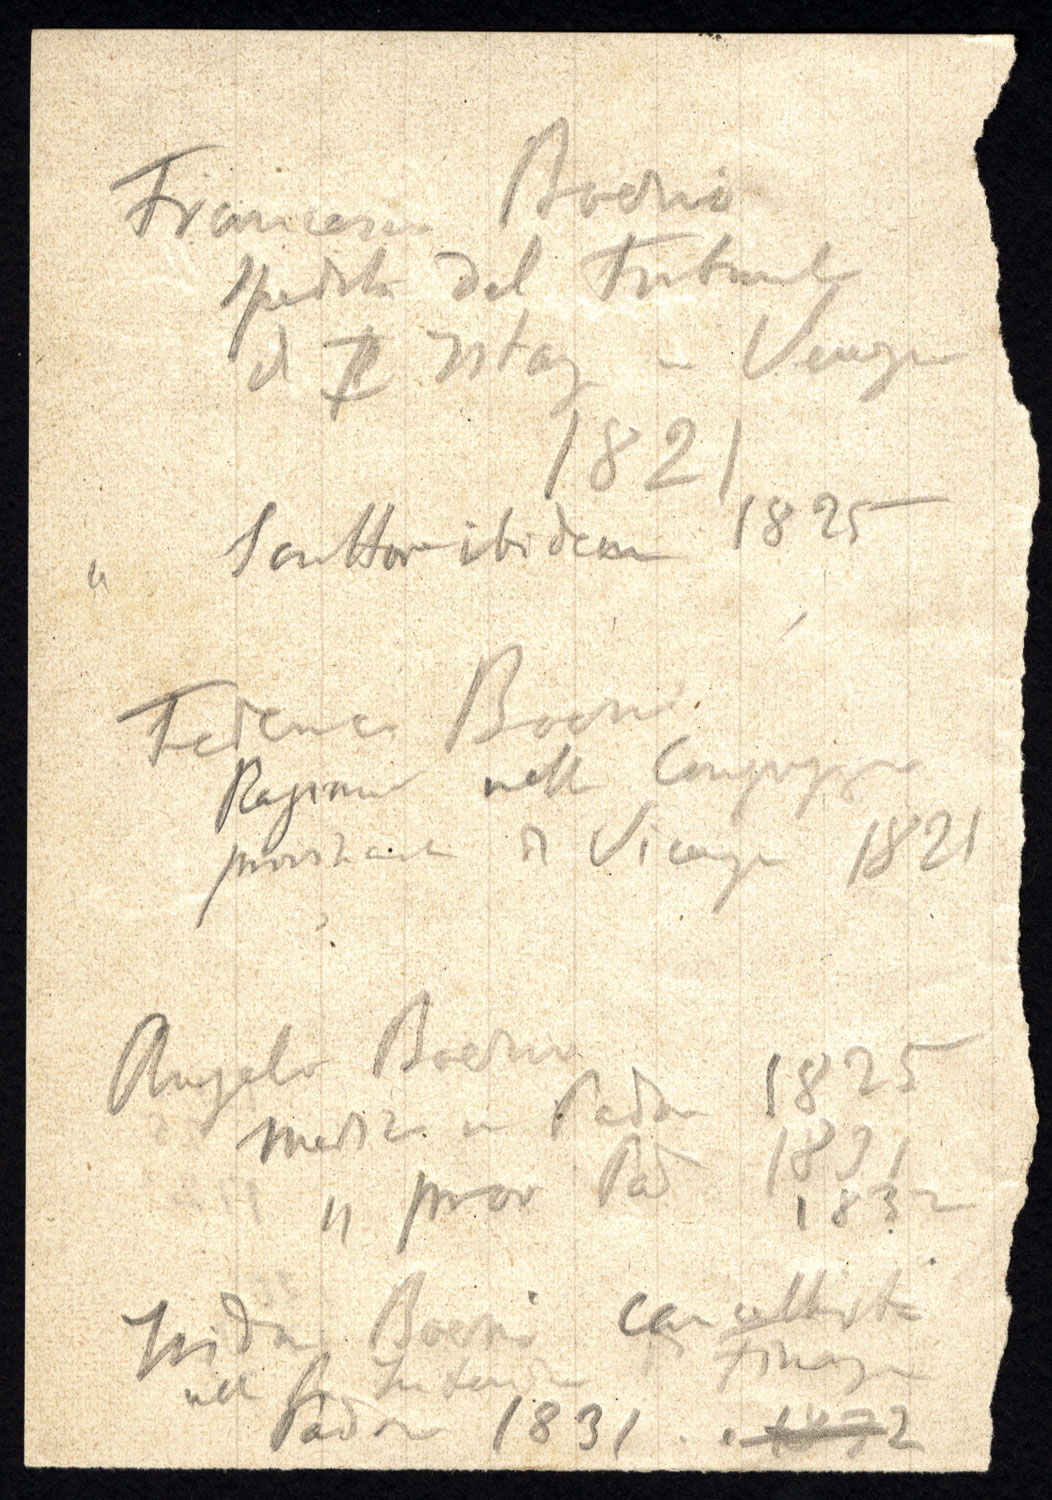 Francesco Boerio
spedito del Tribunale
di Istaz in Venezia
1821
" Scrittore ibidem 1825
Federico Boerio
Ragionier nella Congregazione
provinciale di Vicenza 1821
Angelo Boerio
medico in Padova 1825
1831
" prov Pad 1832
Isidoro Boerio cancellista
nella Intendenza Finanza
Padova 1831 . . 1832